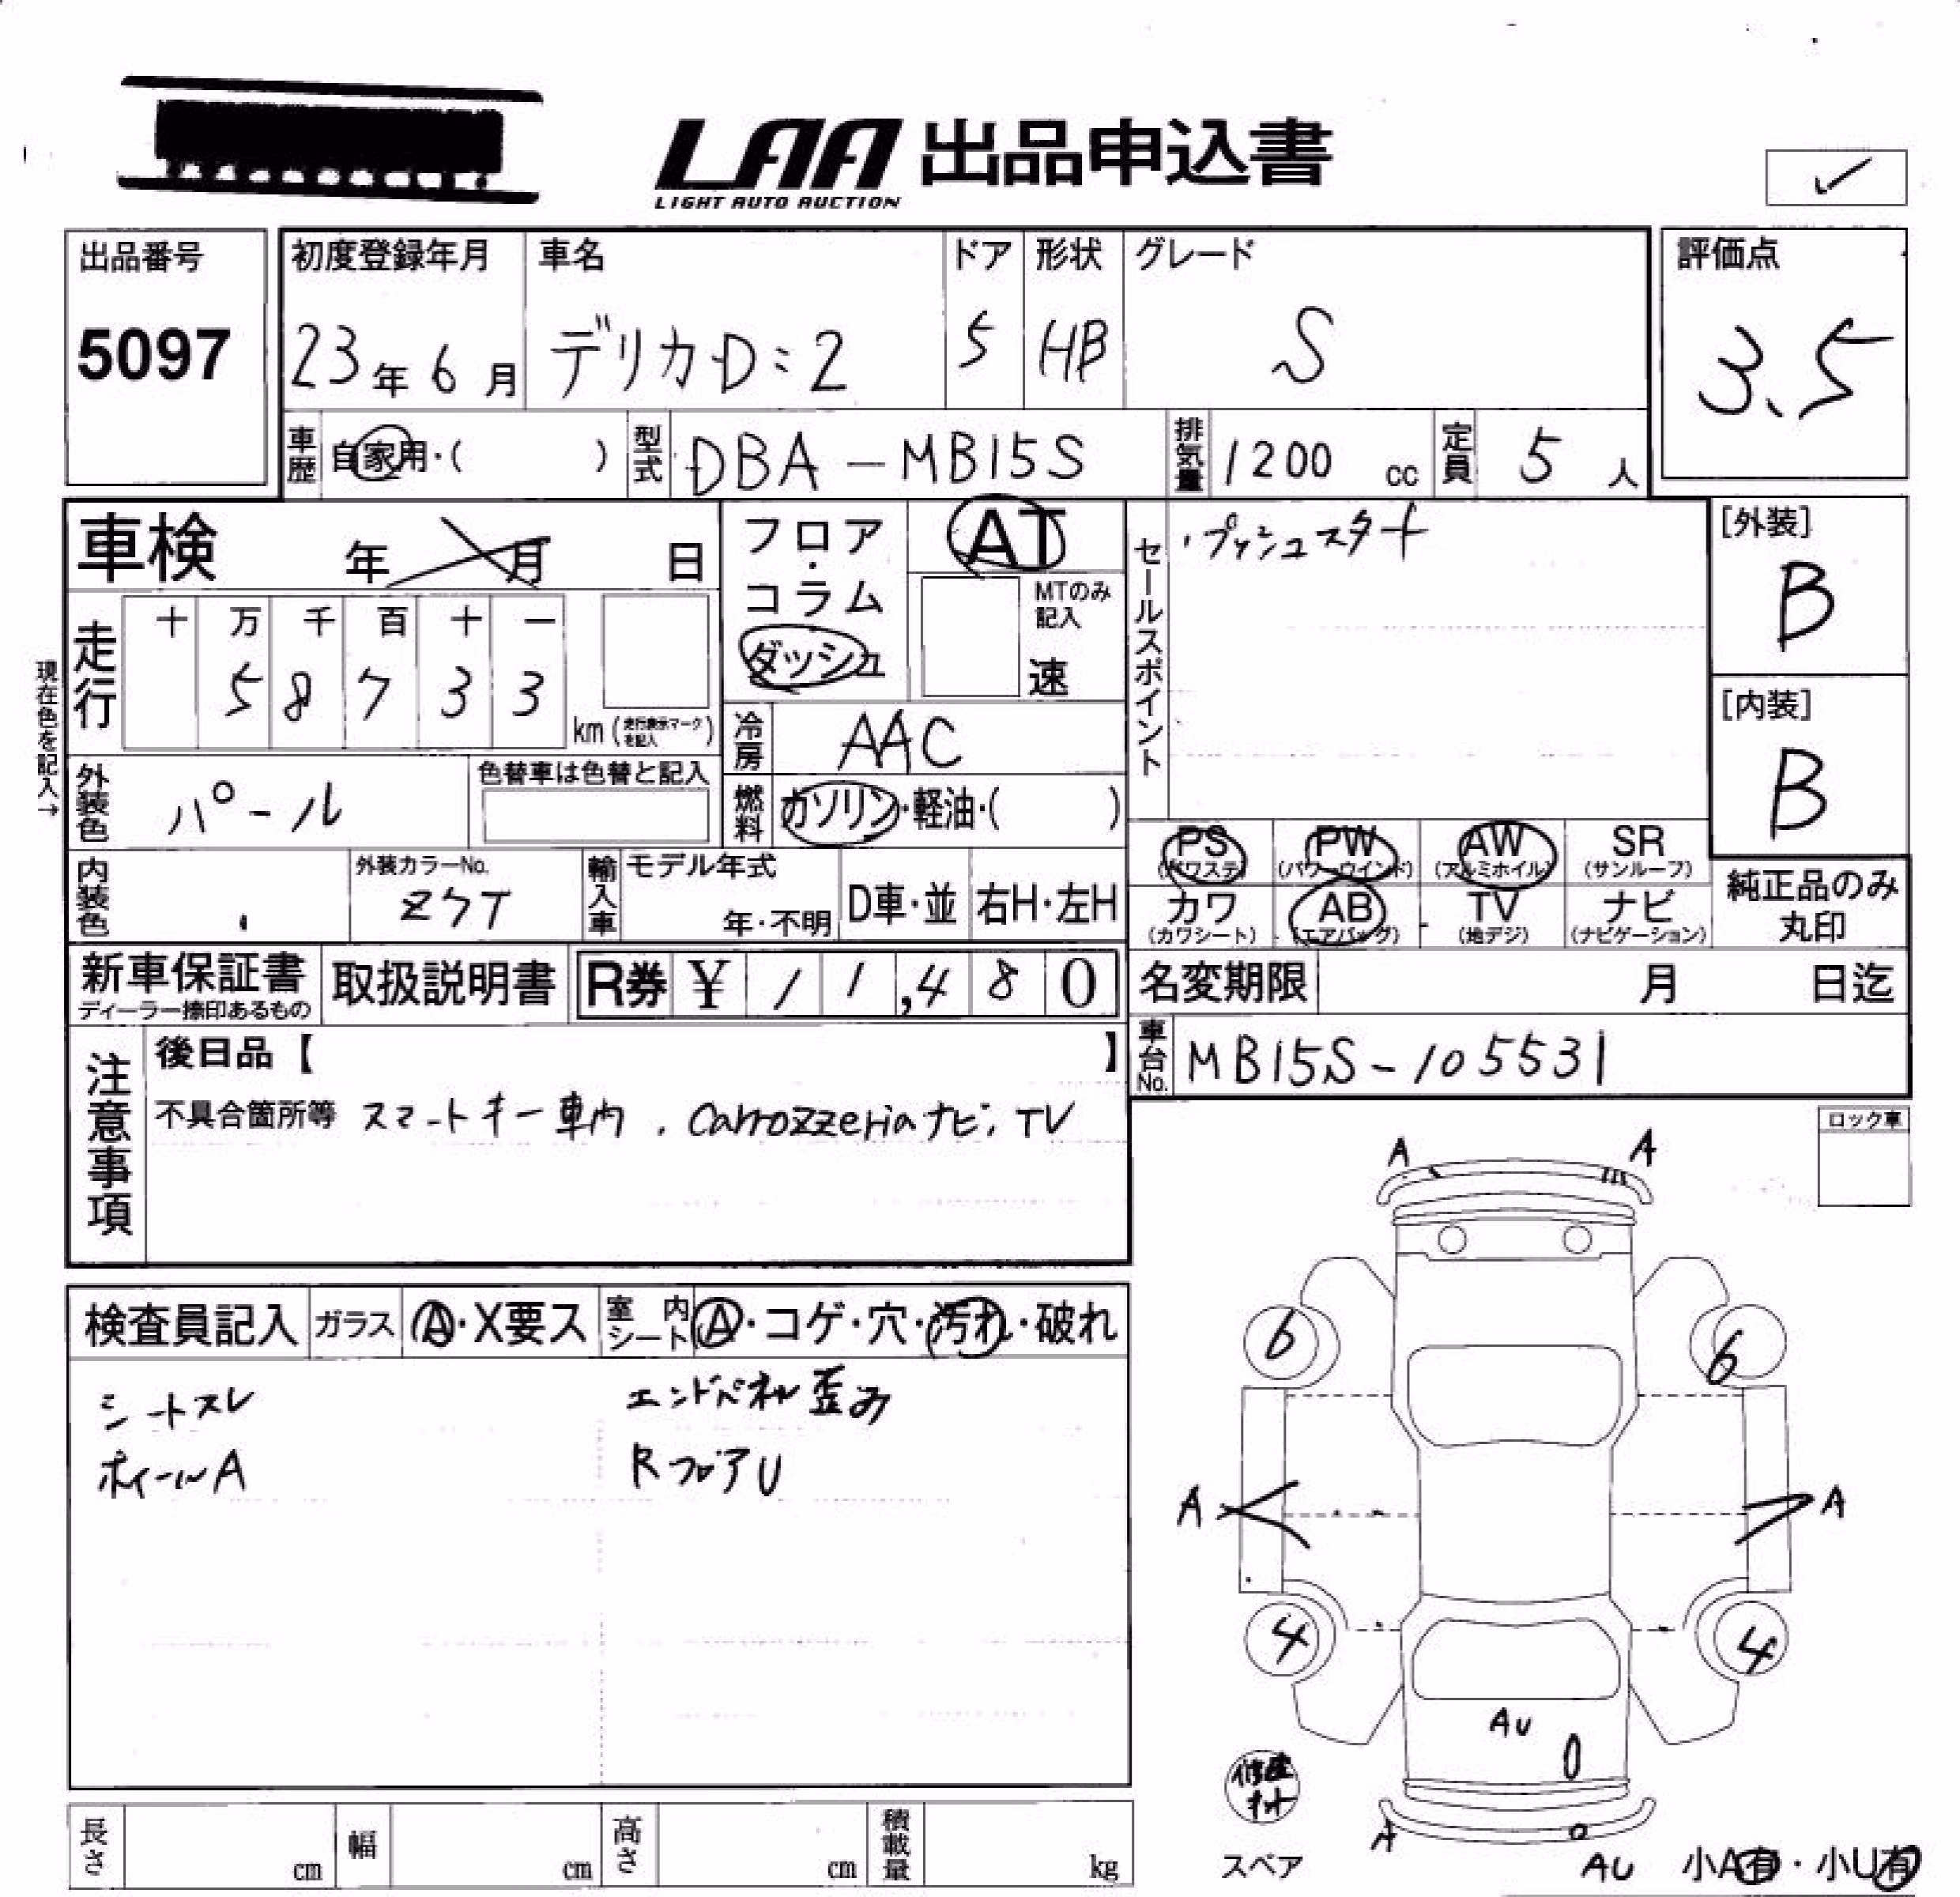 LAA 出品申込書
LIGHT AUTO AUCTION
✓
出品番号
5097
初度登録年月
23年6月
車名
デリカD:2
ドア
5
形状
HB
グレード
S
評価点
3.5
車歴 自家用・( )
型式 DBA-MB15S
排気量 1200 cc
定員 5 人
車検 年 月 日
フロア・コラム
ダッシュ
AT
MTのみ記入
速
セールスポイント
・プッシュスタート
[外装]
B
[内装]
B
現在色を記入→
走行
十 万 千 百 十 一
5 8 7 3 3
km (走行表示マークを記入)
冷房 AAC
外装色 パール
色替車は色替と記入
燃料 ガソリン・軽油・( )
内装色
外装カラーNo.
Z7T
輸入車
モデル年式
年・不明
D車・並
右H・左H
PS (パワステ)
PW (パワーウインド)
AW (アルミホイル)
SR (サンルーフ)
カワ (カワシート)
AB (エアバッグ)
TV (地デジ)
ナビ (ナビゲーション)
純正品のみ丸印
新車保証書
ディーラー捺印あるもの
取扱説明書
R券 ¥ 11,480
名変期限 月 日迄
車台No. MB15S-105531
注意事項
後日品【 】
不具合箇所等 スマートキー車内 . Carrozzeriaナビ, TV
ロック車
検査員記入
ガラス A・X要ス
室内シート A・コゲ・穴・汚れ・破れ
シートスレ
ホイールA
エンドパネル歪み
RフロアU
A A
6 6
A A
4 4
AU
修理キット
スペア
A
AU
小A有・小U有
長さ cm
幅 cm
高さ cm
積載量 kg